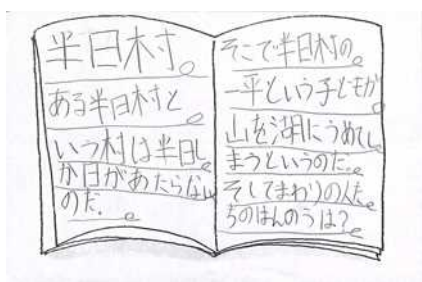 半日村。
ある半日村と
いう村は半日し
か日があたらない
のだ。
そこで半日村の
一平という子どもが
山を湖にうめてし
まうというのだ。
そしてまわりの人た
ちのはんのうは？